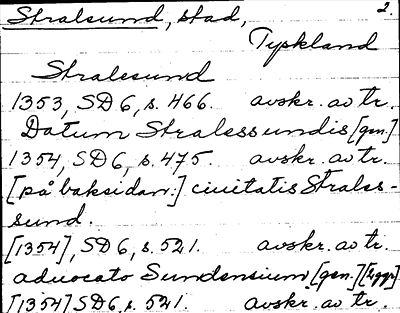 Stralsund, stad, 2.
Tyskland
Stralessund
1353, SD6, s. 466. avskr. av tr.
Datum Stralessundis [gen.]
1354, SD6, s. 475. avskr. av tr.
[på baksidan:] ciuitatis Straless-
sund.
[1354], SD6, s. 521. avskr. av tr.
aduocato Sundensium [gen.]
[1354] SD6, s. 521. avskr. av tr.